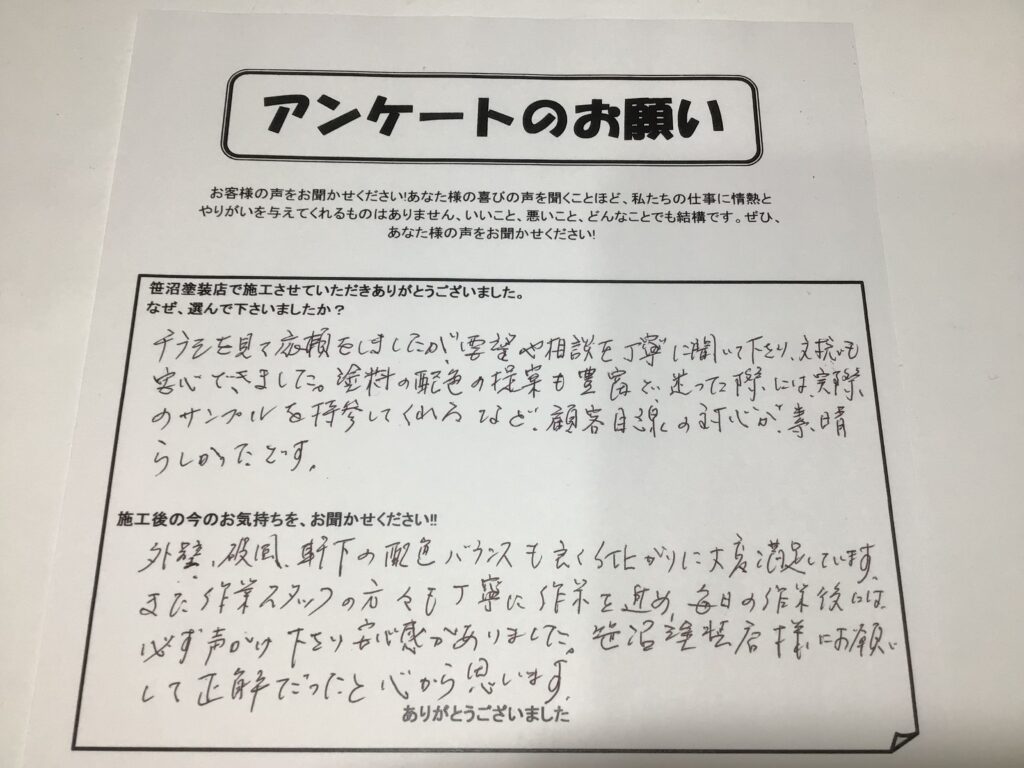 アンケートのお願い
お客様の声をお聞かせください!あなた様の喜びの声を聞くことほど、私たちの仕事に情熱と
やりがいを与えてくれるものはありません、いいこと、悪いこと、どんなことでも結構です。ぜひ、
あなた様の声をお聞かせください!
笹沼塗装店で施工させていただきありがとうございました。
なぜ、選んで下さいましたか?
チラシを見て依頼をしましたが、要望や相談を丁寧に聞いて下さり、
安心できました。塗料の配色の提案も豊富で、迷った際には、実際
のサンプルを持参してくれるなど、顧客目線の対応が、素晴
らしかったです。
施工後の今のお気持ちを、お聞かせください!!
外壁、破風、軒下の配色バランスも良く仕上がりに大変満足しています。
また作業スタッフの方々も丁寧に作業を進め、毎日の作業後には、
必ず声がけ下さり安心感がありました。笹沼塗装店様にお願い
して正解だったと心から思います。
ありがとうございました